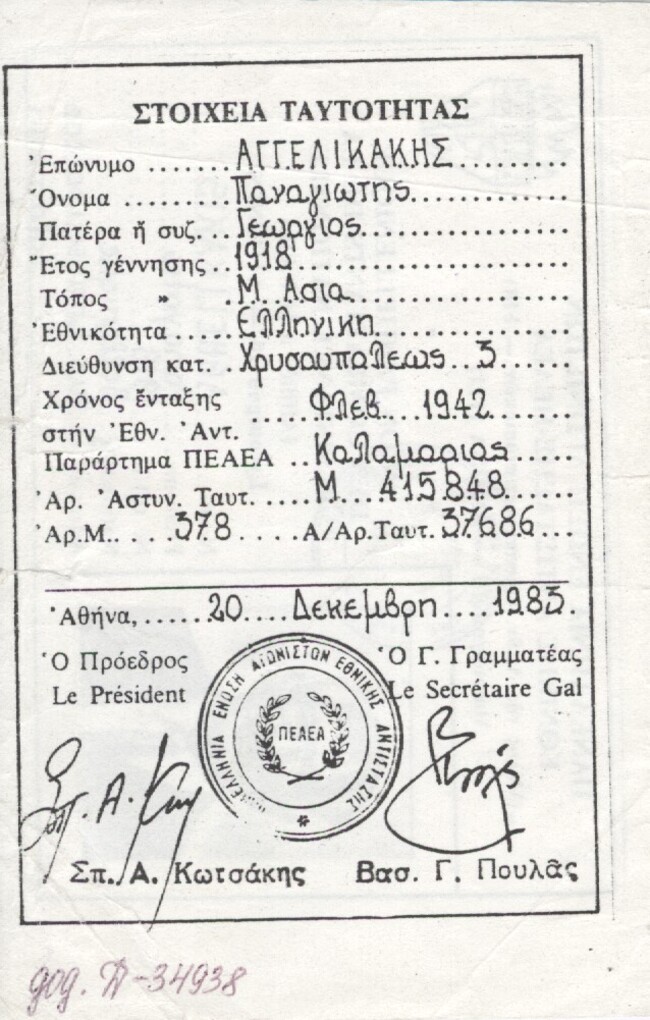 ΣΤΟΙΧΕΙΑ ΤΑΥΤΟΤΗΤΑΣ
Ἐπώνυμο ....... ΑΓΓΕΛΙΚΑΚΗΣ..........
Ὄνομα ......... Παναγιωτης...............
Πατέρα ἤ συζ. .. Γεωργιος..................
Ἔτος γέννησης .. 1918.......................
Τόπος » . Μ. Ασια....................
Ἐθνικότητα ..... Ελληνικη.................
Διεύθυνση κατ. . Χρυσουπολεως...3........
Χρόνος ἔνταξης
στήν Ἐθν. Ἀντ. ....... Φλεβ.... 1942.........
Παράρτημα ΠΕΑΕΑ .. Καλαμαριας........
Ἀρ. Ἀστυν. Ταυτ. ..... Μ...415848......
Ἀρ.Μ.. ...378 ..... Α/Αρ.Ταυτ. 37686...
Ἀθήνα, ..... 20.... Δεκεμβρη ....1985.
Ὁ Πρόεδρος
Le Président
Ὁ Γ. Γραμματέας
Le Secrétaire Gal
ΠΑΝΕΛΛΗΝΙΑ ΕΝΩΣΗ ΑΓΩΝΙΣΤΩΝ ΕΘΝΙΚΗΣ ΑΝΤΙΣΤΑΣΗΣ
ΠΕΑΕΑ
Σπ. Α. Κωτσάκης
Βασ. Γ. Πουλᾶς
34938